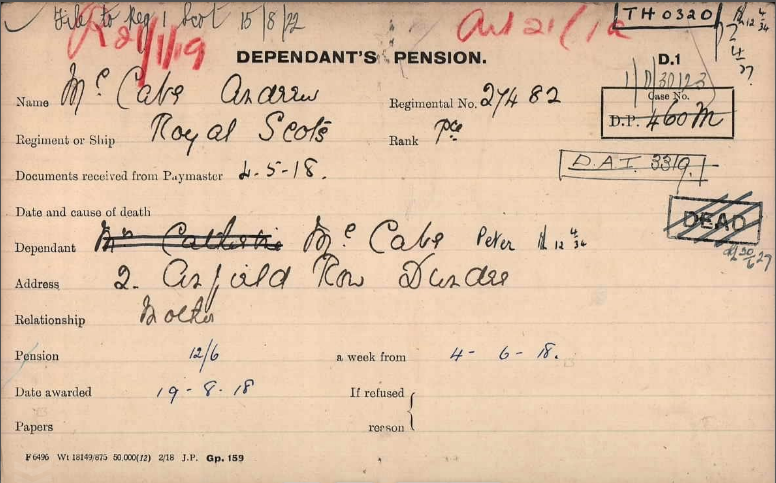 File to Reg 1 Scot 15/8/22
R 21/1/19
Art 21/1
TH0320
12 4/34
DEPENDANT'S PENSION.
D.1
4/27
1/D/30123
Name Mc Cabe Andrew
Regimental No. 27482
Case No.
D.P. 460M
Regiment or Ship Royal Scots
Rank Pte
D.A.I. 3319
Documents received from Paymaster 4-5-18.
Date and cause of death
DEAD
Dependant Mrs Catherine Mc Cabe Peter 12 4/34
30/6/27
Address 2. Anfield Row Dundee
Relationship Mother
Pension 12/6 a week from 4-6-18.
Date awarded 19-8-18 If refused
Papers reason
F6496 Wt 18149/875 50,000(12) 2/18 J.P. Gp. 159